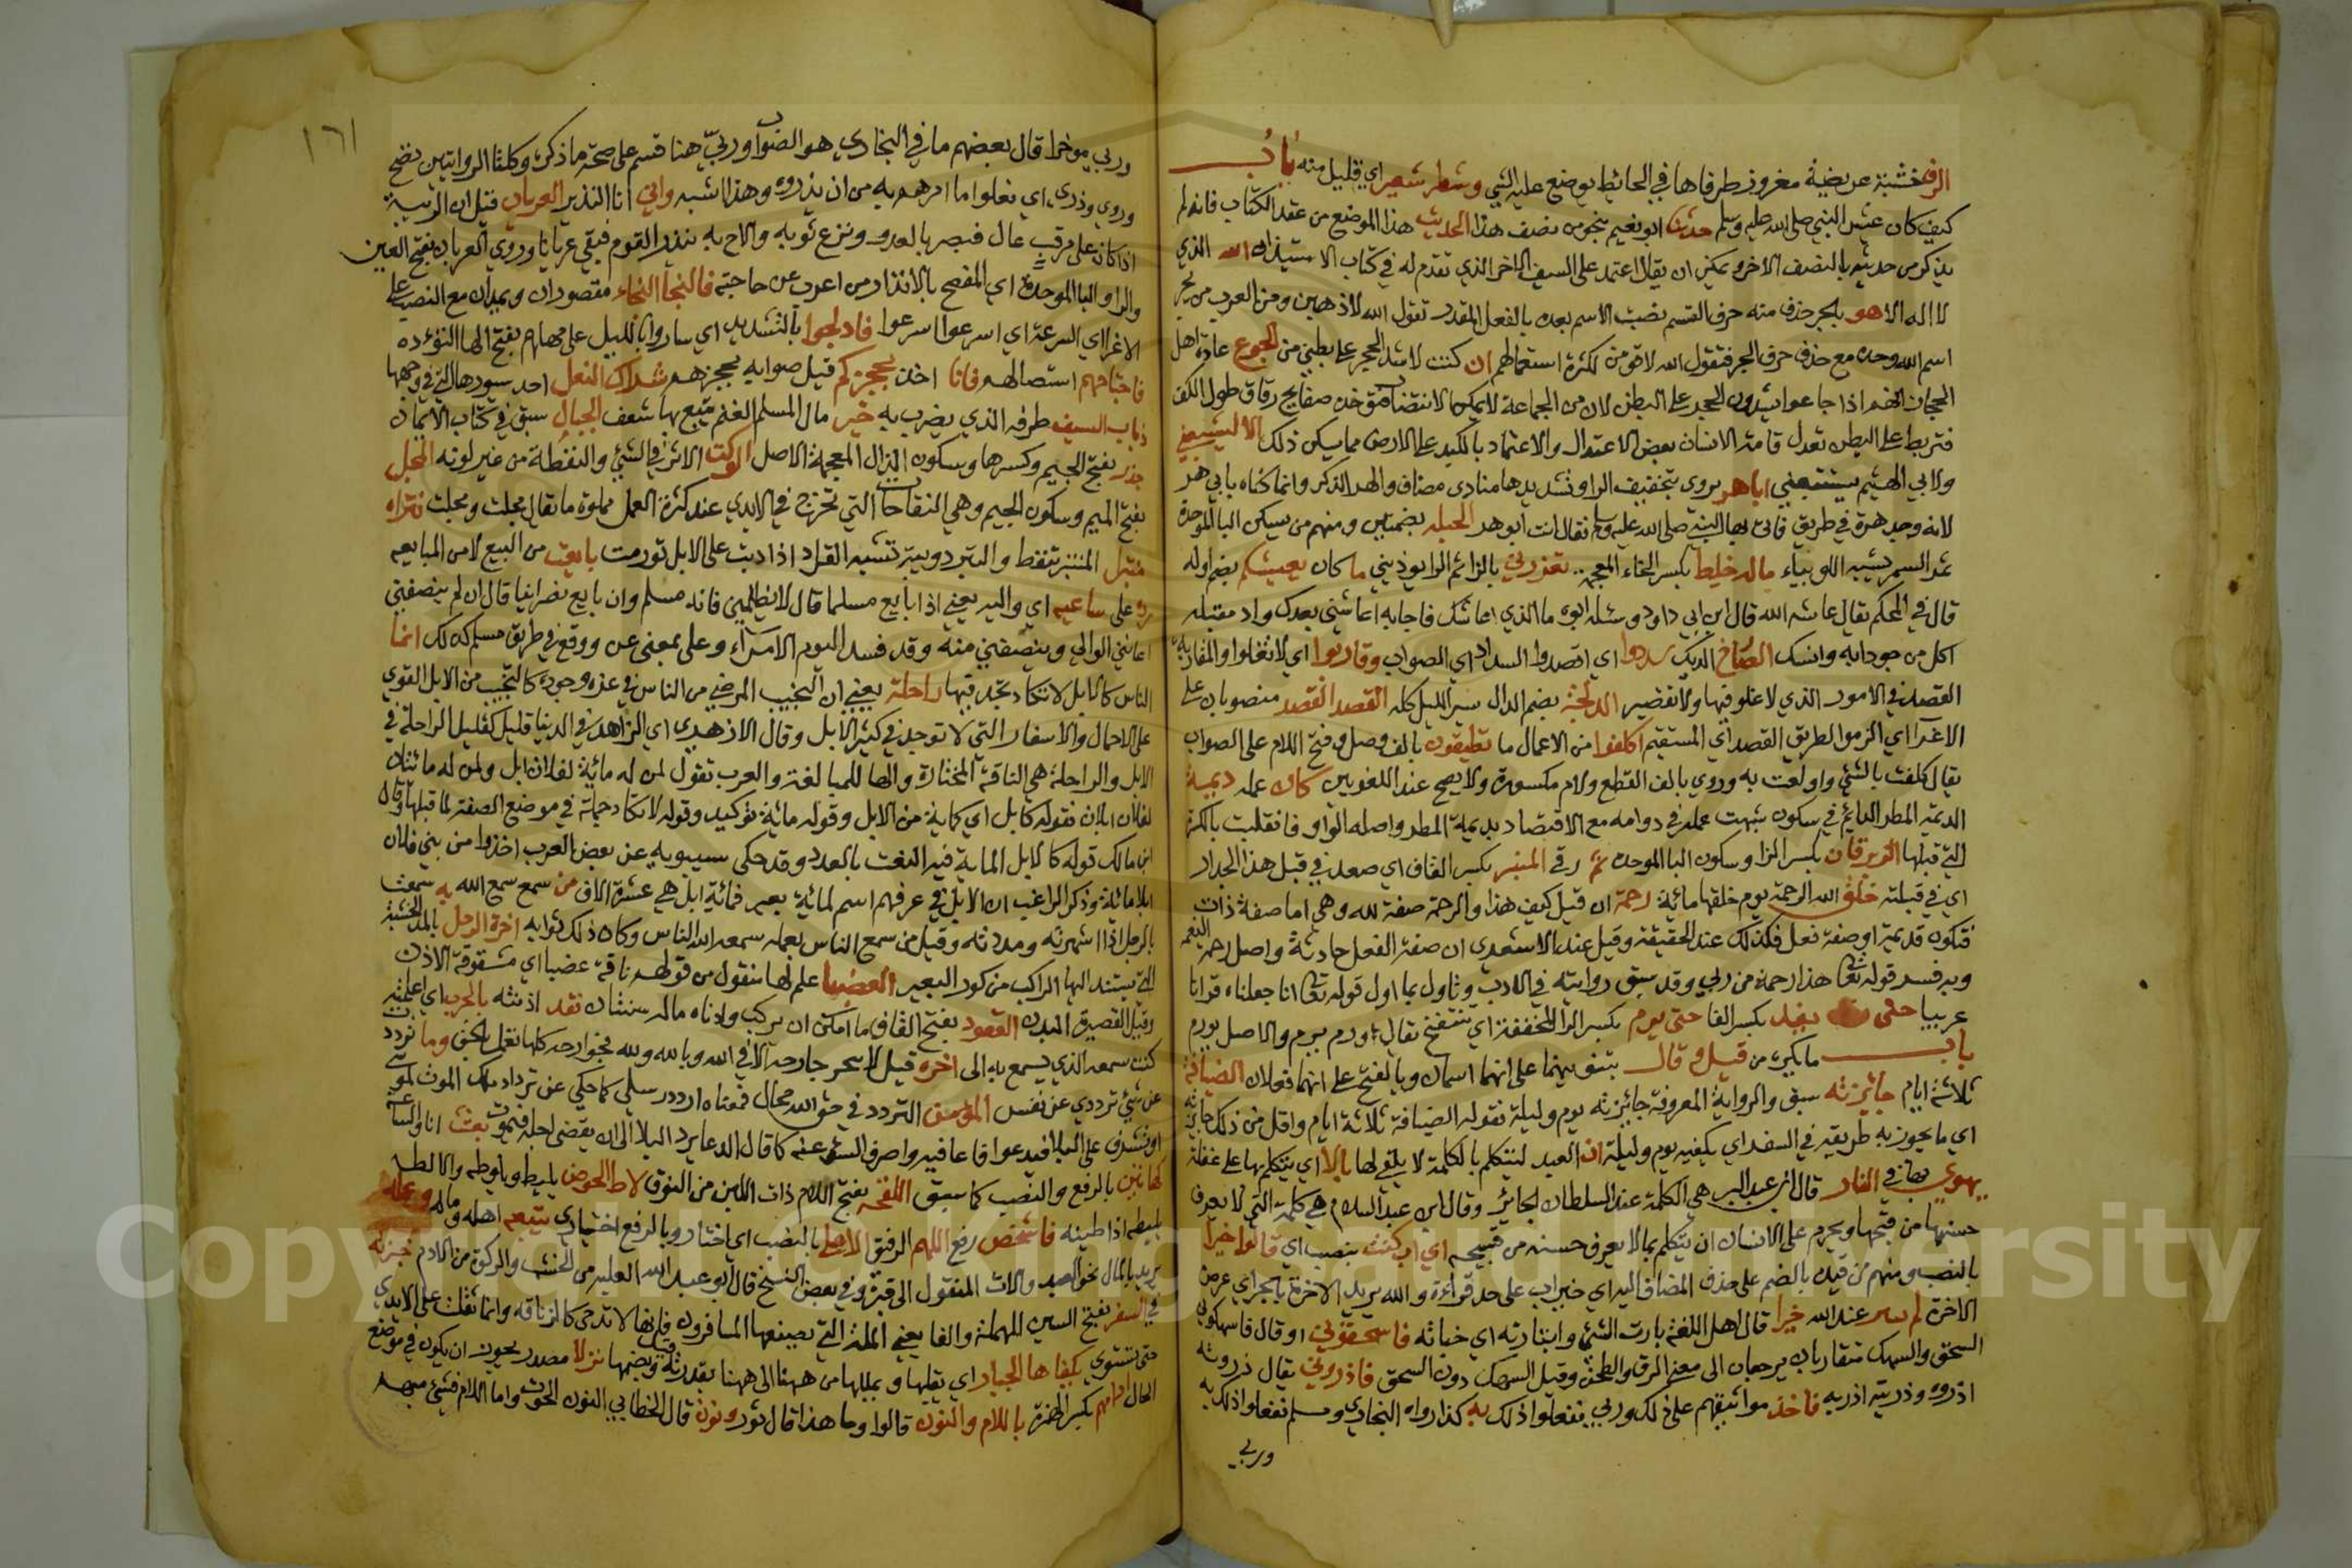 الرف خشبة عريضة مغروز طرفاها في الحائط يوضع عليه الشي وشطر شعير اي قليل منه باب
كيف كان عيش النبي صلى الله عليه وسلم حدثنا ابو نعيم بنحو من نصف هذا الحديث هذا الموضع من عقد الكتاب فانه لم
يذكر من حديثه بالنصف الاخر ويمكن ان يقال اعتمد على السند الاخر الذي تقدم له في كتاب الاستيذان الله الذي
لا اله الا هو بالجر حذف منه حرف القسم نصب الاسم بعده بالفعل المقدر تقول الله لاذهبن ومن العرب من يجر
اسم الله وحده مع حذف حرف الجر فتقول الله لاقومن لكثرة استعمالهم ان كنت لاشد الحجر على بطني من الجوع عادة اهل
الحجاز انهم اذا جاعوا يشدون الحجر على البطن لان من المجاعة لا يمكن الانتصاب فتؤخذ صفايح رقاق طول الكف
فتربط على البطن تعدل قامة الانسان بعض الاعتدال والاعتماد بالكبد على الارض مما يسكن ذلك الا ليشبعني
ولابي الهيثم يستتبعني اباهر يروى بتخفيف الرا وتشديدها منادى مضاف والهر الذكر وانما كناه بابي هر
لانه وجد هرة في طريق فاتى بها النبي صلى الله عليه وسلم فقال انت ابو هر الحبله بضمتين ومنهم من يسكن الباء الموحدة
ثمر السمر يشبه اللوبياء ماله خليط بكسر الخاء المعجمة تعزرني بالزاي ثم الرا يوذيني ما كان يعيشكم بضم اوله
قال في المحكم يقال عاشه الله قال ابن ابي داود وسئله ابوه ما الذي اعاشك فاجابه اعاشني بعدك واد مقبله
اكل من حوذانه وانسل الصارخ الديك سددوا اي اقصدوا السداد اي الصواب وقاربوا اي لا تغلوا والمقاربة
القصد في الامور الذي لا غلو فيها ولا تقصير الدلجة بضم الدال سير الليل كله القصد القصد منصوبان على
الاغراء اي الزموا الطريق القصد اي المستقيم اكلفوا من الاعمال ما تطيقون بالف وصل وفتح اللام على الصواب
يقال كلفت بالشي واولعت به وروي بالف القطع ولام مكسورة ولا يصح عند اللغويين كان عمله ديمة
الديمة المطر الدايم في سكون شبهت عمله في دوامه مع الاقتصاد بديمة المطر واصله الواو فانقلبت بالكسرة
التي قبلها الزبرقان بكسر الزا وسكون البا الموحدة ثم رقي المنبر بكسر القاف اي صعد في قبل هذا الجدار
اي في قبلته خلق الله الرحمة يوم خلقها مائية رحمة ان قيل كيف هذا والرحمة صفة لله وهي اما صفة ذات
فتكون قديمة او صفة فعل فكذلك عند الحقيقة وقيل عند الاشعدي ان صفة الفعل حادثة واصل الرحمة النعمة
وبه فسر قوله تعالى هذا رحمة من ربي وقد سبق روايته في الادب وتاول بما اول قوله تعالى انا جعلناه قرانا
عربيا حتى نفد بكسر الفا حتى يرم بكسر الرا المخففة اي تنتفخ يقال ورم يرم والاصل يورم
باب ما يكره من قيل وقال بتنوينهما على انهما اسمان وبالفتح على انهما فعلان الضيافة
ثلاثة ايام جائزته سبق والرواية المعروفة جائزته يوم وليلة بقوله الضيافة ثلاثة ايام واقل من ذلك جائزته
اي ما يجوز به طريقه في السفر اي يكفيه يوم وليلة ان العبد ليتكلم بالكلمة لا يلقي لها بالا اي يتكلم بها على غفلة
يهوي بها في النار قال ابن عبد البر هي الكلمة عند السلطان الجائر وقال ابن عبد السلام هي كلمة التي لا يعرف
حسنها من قبحها ويحرم على الانسان ان يتكلم بما لا يعرف حسنه من قبيحه اي اب كنت بنصب اي قالوا خيرا
بالنصب ومنهم من قيده بالضم على حذف المضاف اليه اي خير اب على حد قراءة والله يريد الاخرة بالجر اي عرض
الاخرة لم يبتئر عند الله خيرا قال اهل اللغة بارت الشي وابتارته اي خباته فاسحقوني او قال فاسهكوني
السحق والسهك متقاربان يرجعان الى معنى الرق والطحن وقيل السهك دون السحق فاذروني يقال ذروته
اذروه وذريته اذريه فاخذ مواثيقهم على ذلك وربي ففعلوا ذلك به كذا رواه البخاري ومسلم ففعلوا ذلك به
وربي
١٦١
وربي موخرا قال بعضهم ما في البخاري هو الصواب وربي هنا قسم على صحة ما ذكره وكلتا الروايتين تصح
وروي وذرى اي فعلوا ما امرهم به من ان يذروه وهذا اشبه واني انا النذير العريان قيل ان الربيئة
اذا كان على مرقب عال فبصر بالعدو ونزع ثوبه والاح به ينذر القوم فبقي عريانا وروي العربان بفتح العين
والرا والبا الموحدة اي المفصح بالانذار من اعرب عن حاجته فالنجا النجاء مقصوران ويمدان مع النصب على
الاغرا اي السرعة اي اسرعوا اسرعوا فادلجوا بالتشديد اي ساروا بالليل على مهلهم بفتح الها التؤدة
فاجتاحهم استصالهم فانا اخذ بحجزكم قيل صوابه بحجزهم شراك النعل احد سيورها التي في وجهها
ذباب السيف طرفه الذي يضرب به خير مال المسلم الغنم يتبع بها شعف الجبال سبق في كتاب الايمان
جذر بفتح الجيم وكسرها وسكون الذال المعجمة الاصل الوكت الاثر في الشي والنقطة من غير لونه المجل
بفتح الميم وسكون الجيم وهي النفاخات التي تخرج في الايدي عند كثرة العمل مملوة ما يقال مجلت ومجلت فتراه
منتبرا المنتبر تنفط والنبر دويبة تشبه القراد اذا دبت على الابل تورمت بايعت من البيع لا من المبايعه
رده على ساعيه اي واليه يعني اذا بايع مسلما قال لا يظلمني فانه مسلم وان بايع نصرانيا قال ان لم ينصفني
اعانني الوالي وينصفني منه وقد فسد اليوم الامراء وعلى بمعنى عن ووقع في طريق مسلم كذلك انما
الناس كالابل لا تكاد تجد فيها راحلة يعني ان النجيب المرضي من الناس في عزه وجوده كالنجيب من الابل القوي
على الاحمال والاسفار التي لا توجد في كثير الابل وقال الازهري اي الزاهد في الدنيا قليل كقليل الراحلة في
الابل والراحلة هي الناقة المختارة والها للمبالغة والعرب تقول لمن له مائية لفلان ابل ولمن له مائتان
لفلان ابلان فقوله كابل اي كماية من الابل وقوله مائية توكيد وقوله لا تكاد جملة في موضع الصفة لما قبلها وقال
ابن مالك قوله كالابل الماية فيه النعت بالعدد وقد حكى سيبويه عن بعض العرب اخذوا من بني فلان
ابلا مائة وذكر الراغب ان الابل في عرفهم اسم لمائية بعير فمائية ابل هي عشرة الاف من سمع سمع الله به سمعت
بالرجل اذا شهرته ونددت به وقيل من سمع الناس بعمله سمعه الله الناس وكان ذلك ثوابه اخرة الرحل بالمد الخشبة
التي يستند اليها الراكب من كور البعير العضبا علم لها منقول من قولهم ناقة عضبا اي مشقوقة الاذن
وقيل القصيرة اليد القعود بفتح القاف ما امكن ان يركب وادناه ماله سنتان فقد اذنته بالحرب اي اعلمته
كنت سمعه الذي يسمع به الى اخره قيل لا يتحرك جارحة الا في الله وبالله ولله فجوارحه كلها تعمل بالحق وما ترددت
عن شي ترددي عن نفس المؤمن التردد في حق الله محال فمعناه اردد رسلي كما حكي عن ترداد ملك الموت لموسى
او تشرف على البلا فيدعوا فاعافيه واصرف السوء عنه كما قال الدعا يرد البلا الى ان يقضى اجله فيموت بعثت انا والساعة
كهاتين بالرفع والنصب كما سبق اللقحة بفتح اللام ذات اللبن من النوق لاط الحوض يليط ويلوطه والالط
يليطه اذا طينه فاشخص رفع اللهم الرفيق الاعلى بالنصب اي اختار وبالرفع اختياري يتبعه اهله وماله وعمله
يريد بالمال نحو العبيد والاث المنقول الى قبره وفي بعض النسخ قال ابو عبد الله العلبة من الخشب والركوة من الادم خبزته
في السفر بفتح السين المهملة والفا يعني الملة التي يصنعها المسافرون فانها لا تدحى كالرقاقة وانما تقلب على الايدي
حتى تستوي يكفاها الجبار اي يقلبها ويميلها من ههنا الى ههنا بقدرته وبضمها نزلا مصدر يجوز ان يكون في موضع
الحال ادامهم بكسر الهمزة بالام والنون قالوا وما هذا قال ثور ونون قال الخطابي النون الحوت واما اللام فشي مبهم